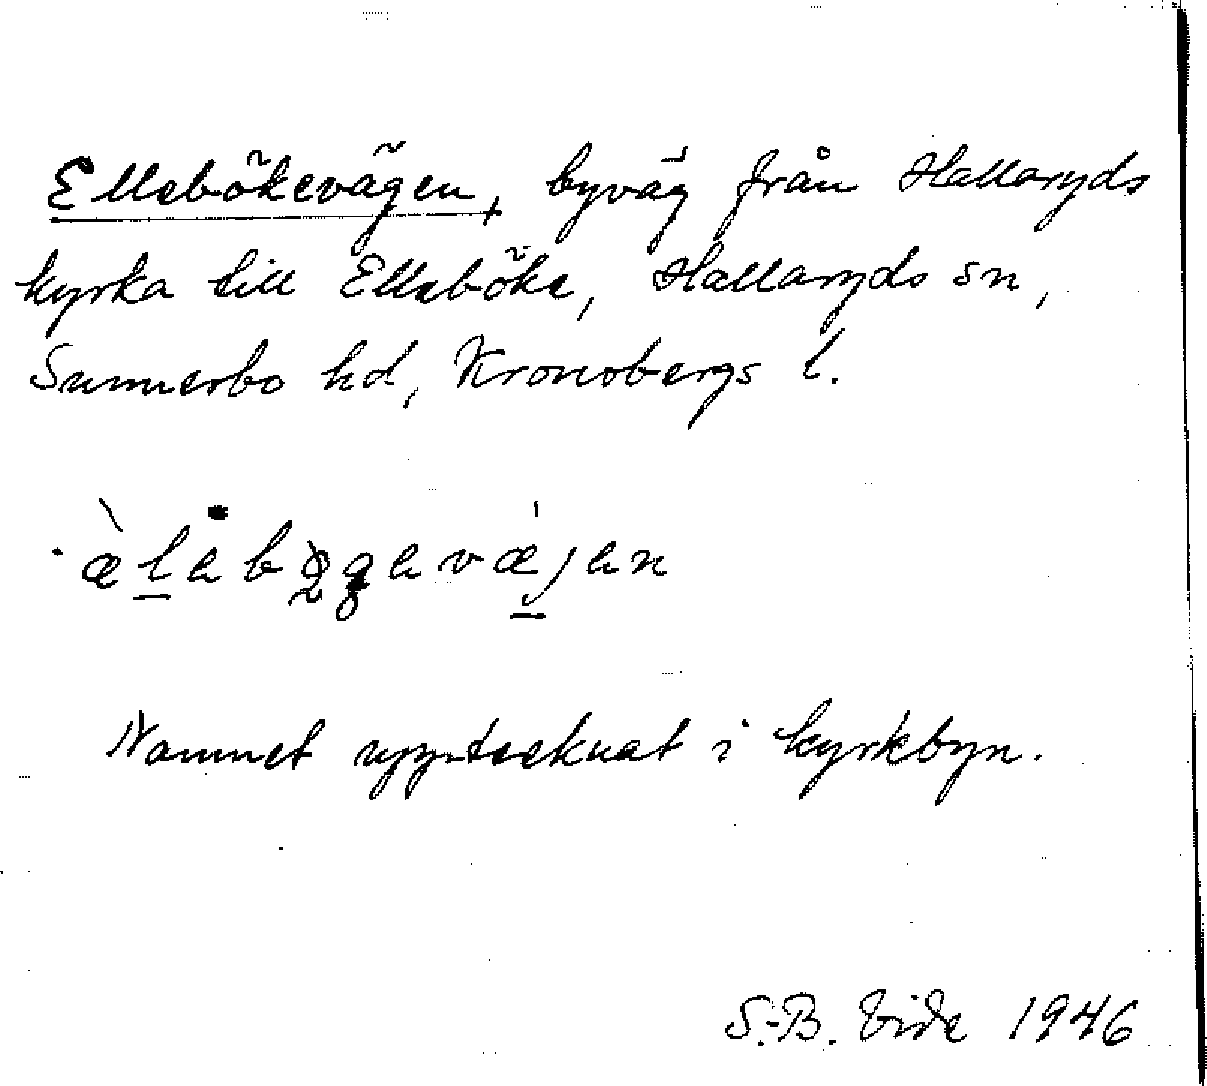 Ellebökevägen, byväg från Hallaryds
kyrka till Elleböke, Hallaryds sn,
Sunnerbo hd, Kronobergs l.
Namnet upptecknat i kyrkbyn.
S.-B. Vide 1946